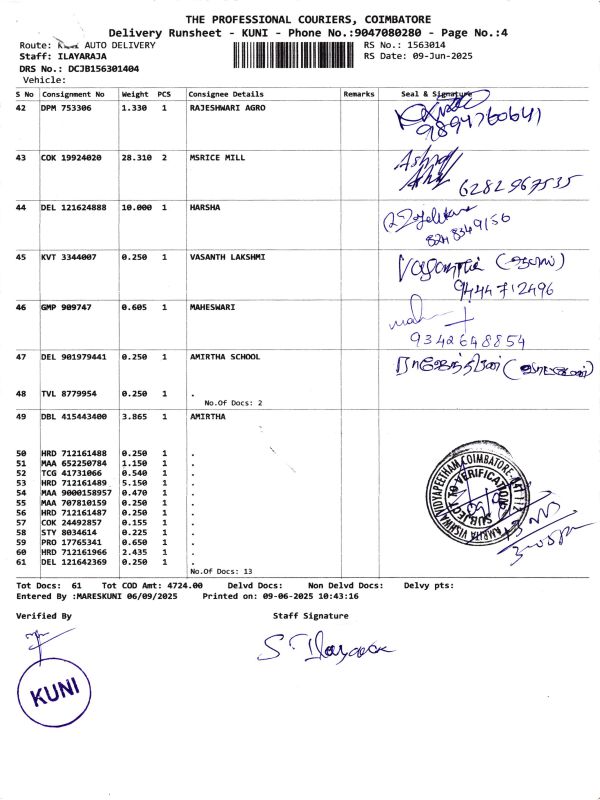 THE PROFESSIONAL COURIERS, COIMBATORE
Delivery Runsheet - KUNI - Phone No.:9047080280 - Page No.:4
Route: KUNI AUTO DELIVERY
RS No.: 1563014
Staff: ILAYARAJA
RS Date: 09-Jun-2025
DRS No.: DCJB156301404
Vehicle:
S No Consignment No Weight PCS Consignee Details Remarks Seal & Signature
42 DPM 753306 1.330 1 RAJESHWARI AGRO
9894760641
43 COK 19924020 28.310 2 MSRICE MILL
6282967535
44 DEL 121624888 10.000 1 HARSHA
8248349156
45 KVT 3344007 0.250 1 VASANTH LAKSHMI
9444712496
46 GMP 909747 0.605 1 MAHESWARI
9342648854
47 DEL 901979441 0.250 1 AMIRTHA SCHOOL
48 TVL 8779954 0.250 1 .
No.Of Docs: 2
49 DBL 415443400 3.865 1 AMIRTHA
50 HRD 712161488 0.250 1 .
51 MAA 652250784 1.150 1 .
52 TCG 41731066 0.540 1 .
53 HRD 712161489 5.150 1 .
54 MAA 9000158957 0.470 1 .
55 MAA 707810159 0.250 1 .
56 HRD 712161487 0.250 1 .
57 COK 24492857 0.155 1 .
58 STY 8034614 0.225 1 .
59 PRO 17765341 0.650 1 .
60 HRD 712161966 2.435 1 .
61 DEL 121642369 0.250 1 .
No.Of Docs: 13
AMRITA VISHWA VIDYAPEETHAM COIMBATORE-641 112
SUBJECT TO VERIFICATION
Tot Docs: 61 Tot COD Amt: 4724.00 Delvd Docs: Non Delvd Docs: Delvy pts:
Entered By :MARESKUNI 06/09/2025 Printed on: 09-06-2025 10:43:16
Verified By
Staff Signature
KUNI